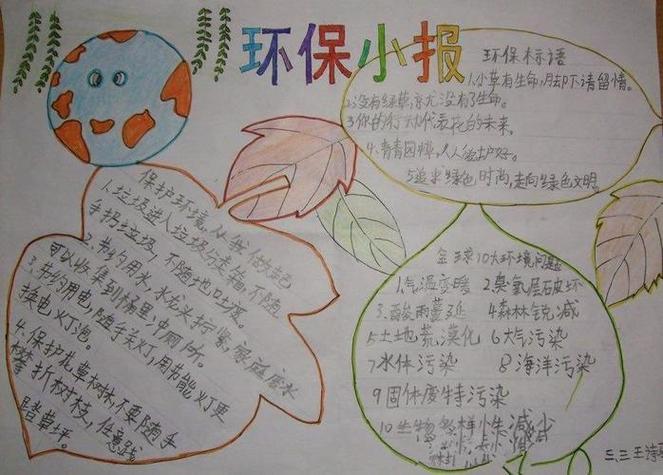 环保小报
环保标语
1.小草有生命,月却下请留情。
2.没有绿草,亦尤没有了生命。
3.你的行动代表花的未来。
4.青青园椁,人人爱护好。
5.追求绿色时尚,走向绿色文明
保护环境从我做起
1.垃圾进入垃圾分类箱,不随
手扔垃圾,不随地吐痰。
2.节约用水,水龙头拧紧,家庭废水
可以收集到桶里冲厕所。
3.节约用电,随手关灯,用节能灯更
换电灯泡。
4.保护花草树林,不要随手
攀折树枝,任意践
踏草坪。
全球10大环境问题
1.气温变暖 2臭氧层破坏
3.酸雨蔓延 4森林锐减
5土地荒漠化 6大气污染
7水体污染 8海洋污染
9固体废特污染
10生物多样性减少
三.三王诗